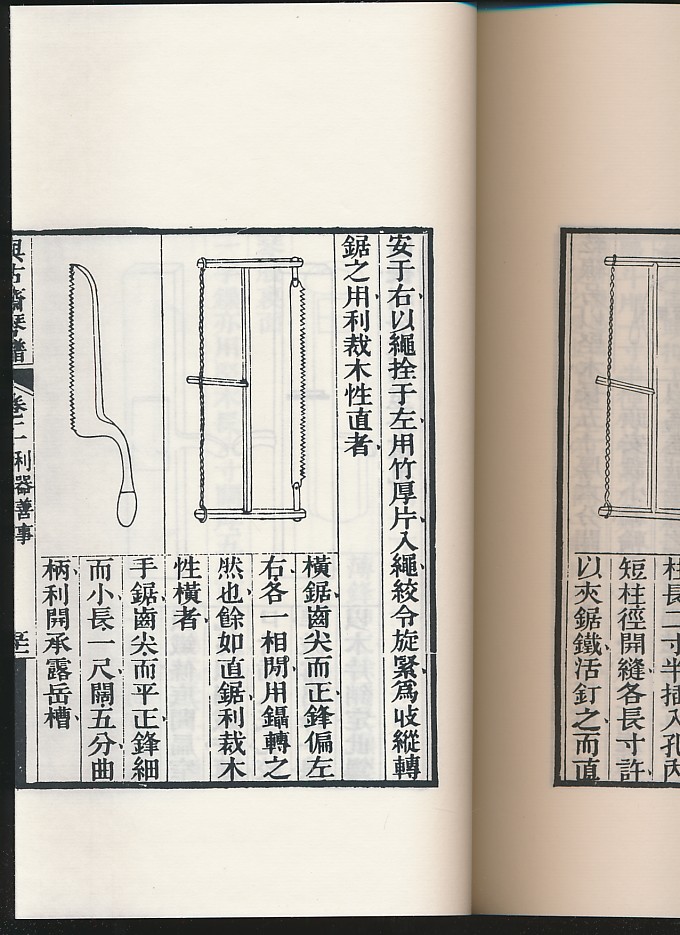 柱長二寸半插入孔內
短柱徑開縫各長寸許
以夾鋸鐵活釘之而直
安于右以繩拴于左用竹厚片入繩絞令旋緊爲歧縱轉
鋸之用利裁木性直者
橫鋸齒尖而正鋒偏左
右各一相閒用鑷轉之
然也餘如直鋸利裁木
性橫者
手鋸齒尖而平正鋒細
而小長一尺闊五分曲
柄利開承露岳槽
與古齋琴譜
卷二 利器善事